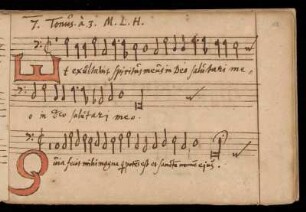 7. Tonus. à 3. M. L. H.
Et exultabit spiritus meus in Deo salutari me-
o in Deo salutari meo.
Quia fecit mihi magna q potens est et sanctum nomen ejus.